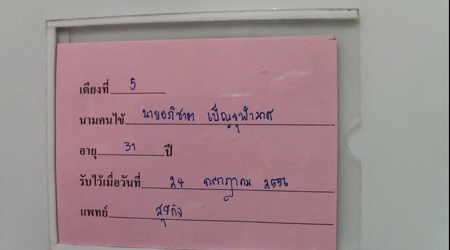 เตียงที่ 5
นามคนไข้ นายอภิชาต เป็ญจุฬามาศ
อายุ 31 ปี
รับไว้เมื่อวันที่ 24 กรกฎาคม 2556
แพทย์ สุรกิจ